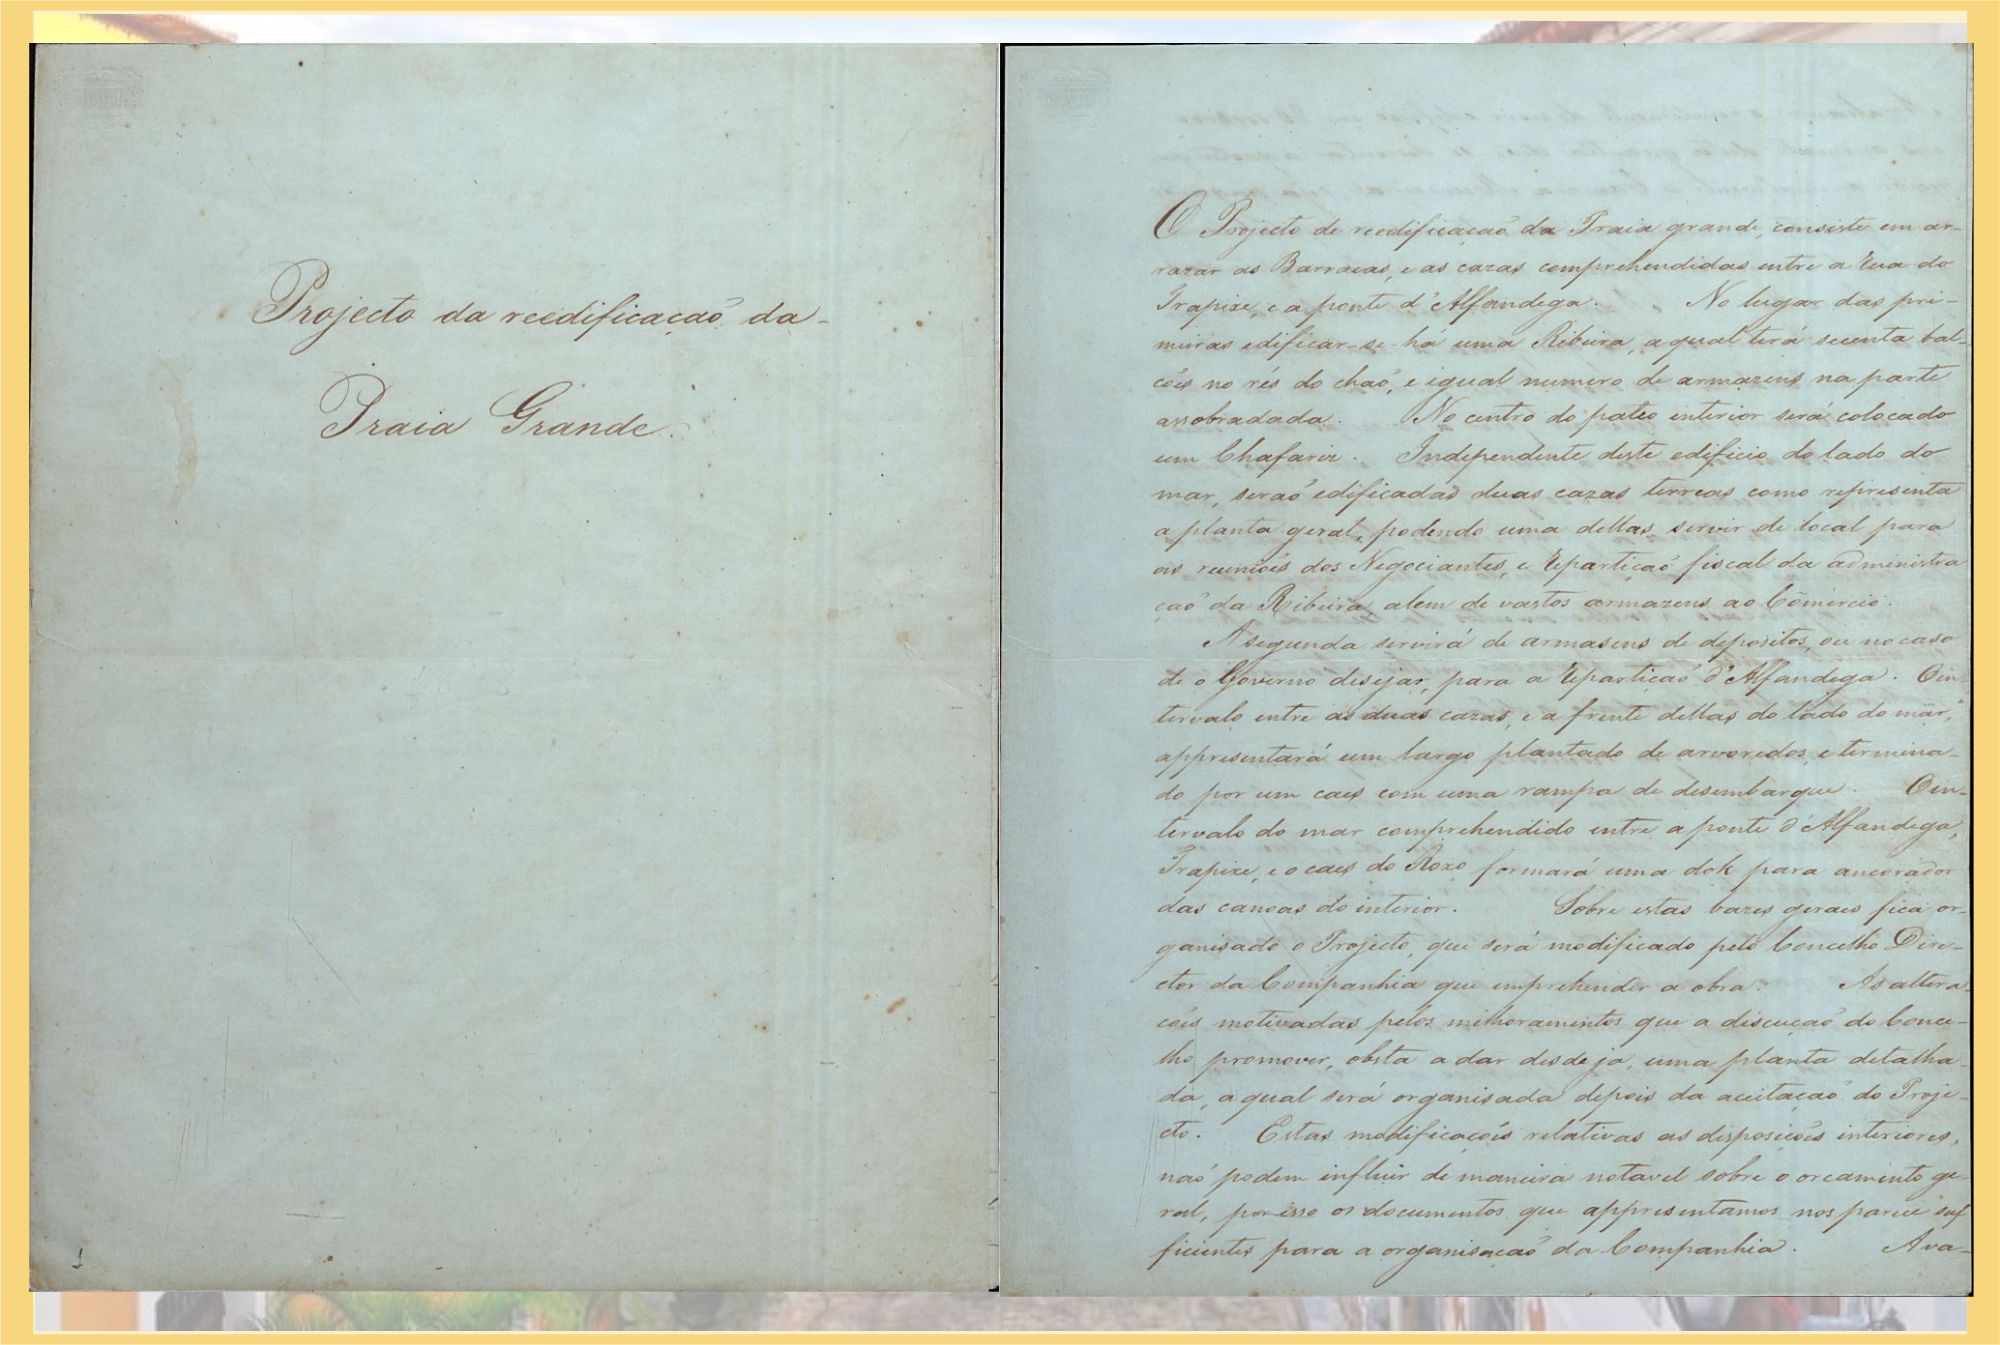 Projecto da reedificaçaõ da
Praia Grande.
1
O Projecto de reedificaçaõ da Praia grande, consiste em ar-
razar as Barracas, e as cazas comprehendidas entre a Rua do
Trapixe, e a ponte d'Alfandega. No lugar das pri-
meiras edificar-se-há uma Ribeira, a qual terá secenta bal-
cões no rés do chaõ, e igual numero de armazens na parte
assobradada. No centro do pateo interior será colocado
um Chafariz. Independente deste edificio do lado do
mar, seraõ edificadas duas cazas terreas como representa
a planta geral, podendo uma dellas servir de local para
as reuniões dos Negociantes, e Repartiçaõ fiscal da administra
çaõ da Ribeira, alem de vastos armazens ao Cõmercio.
A segunda servirá de armasens de depositos, ou no caso
de o Governo desejar, para a Repartiçaõ d'Alfandega. O in
tervalo entre as duas cazas, e a frente dellas do lado do mar,
appresentará um largo plantado de arvoredos, e termina-
do por um caes com uma rampa de desembarque. O in-
tervalo do mar comprehendido entre a ponte d'Alfandega,
Trapixe, e o caes do Roxo formará uma dok para ancorador
das canoas do interior. Sobre estas bazes geraes fica or-
ganisado o Projecto, que será modificado pelo Concelho Dire-
ctor da Companhia que emprehender a obra. As altera-
cões motivadas pelos milhoramentos que a discuçaõ do Conce-
lho promover, obsta a dar desde ja, uma planta detalha-
da, a qual será organisada depois da aceitaçaõ do Proje-
cto. Estas modificaçoẽs relativas as disposicões interiores,
naõ podem influir de maneira notavel sobre o orcamento ge-
ral, por isso os documentos que appresentamos nos parece suf
ficientes para a organisaçaõ da Companhia. Ava-